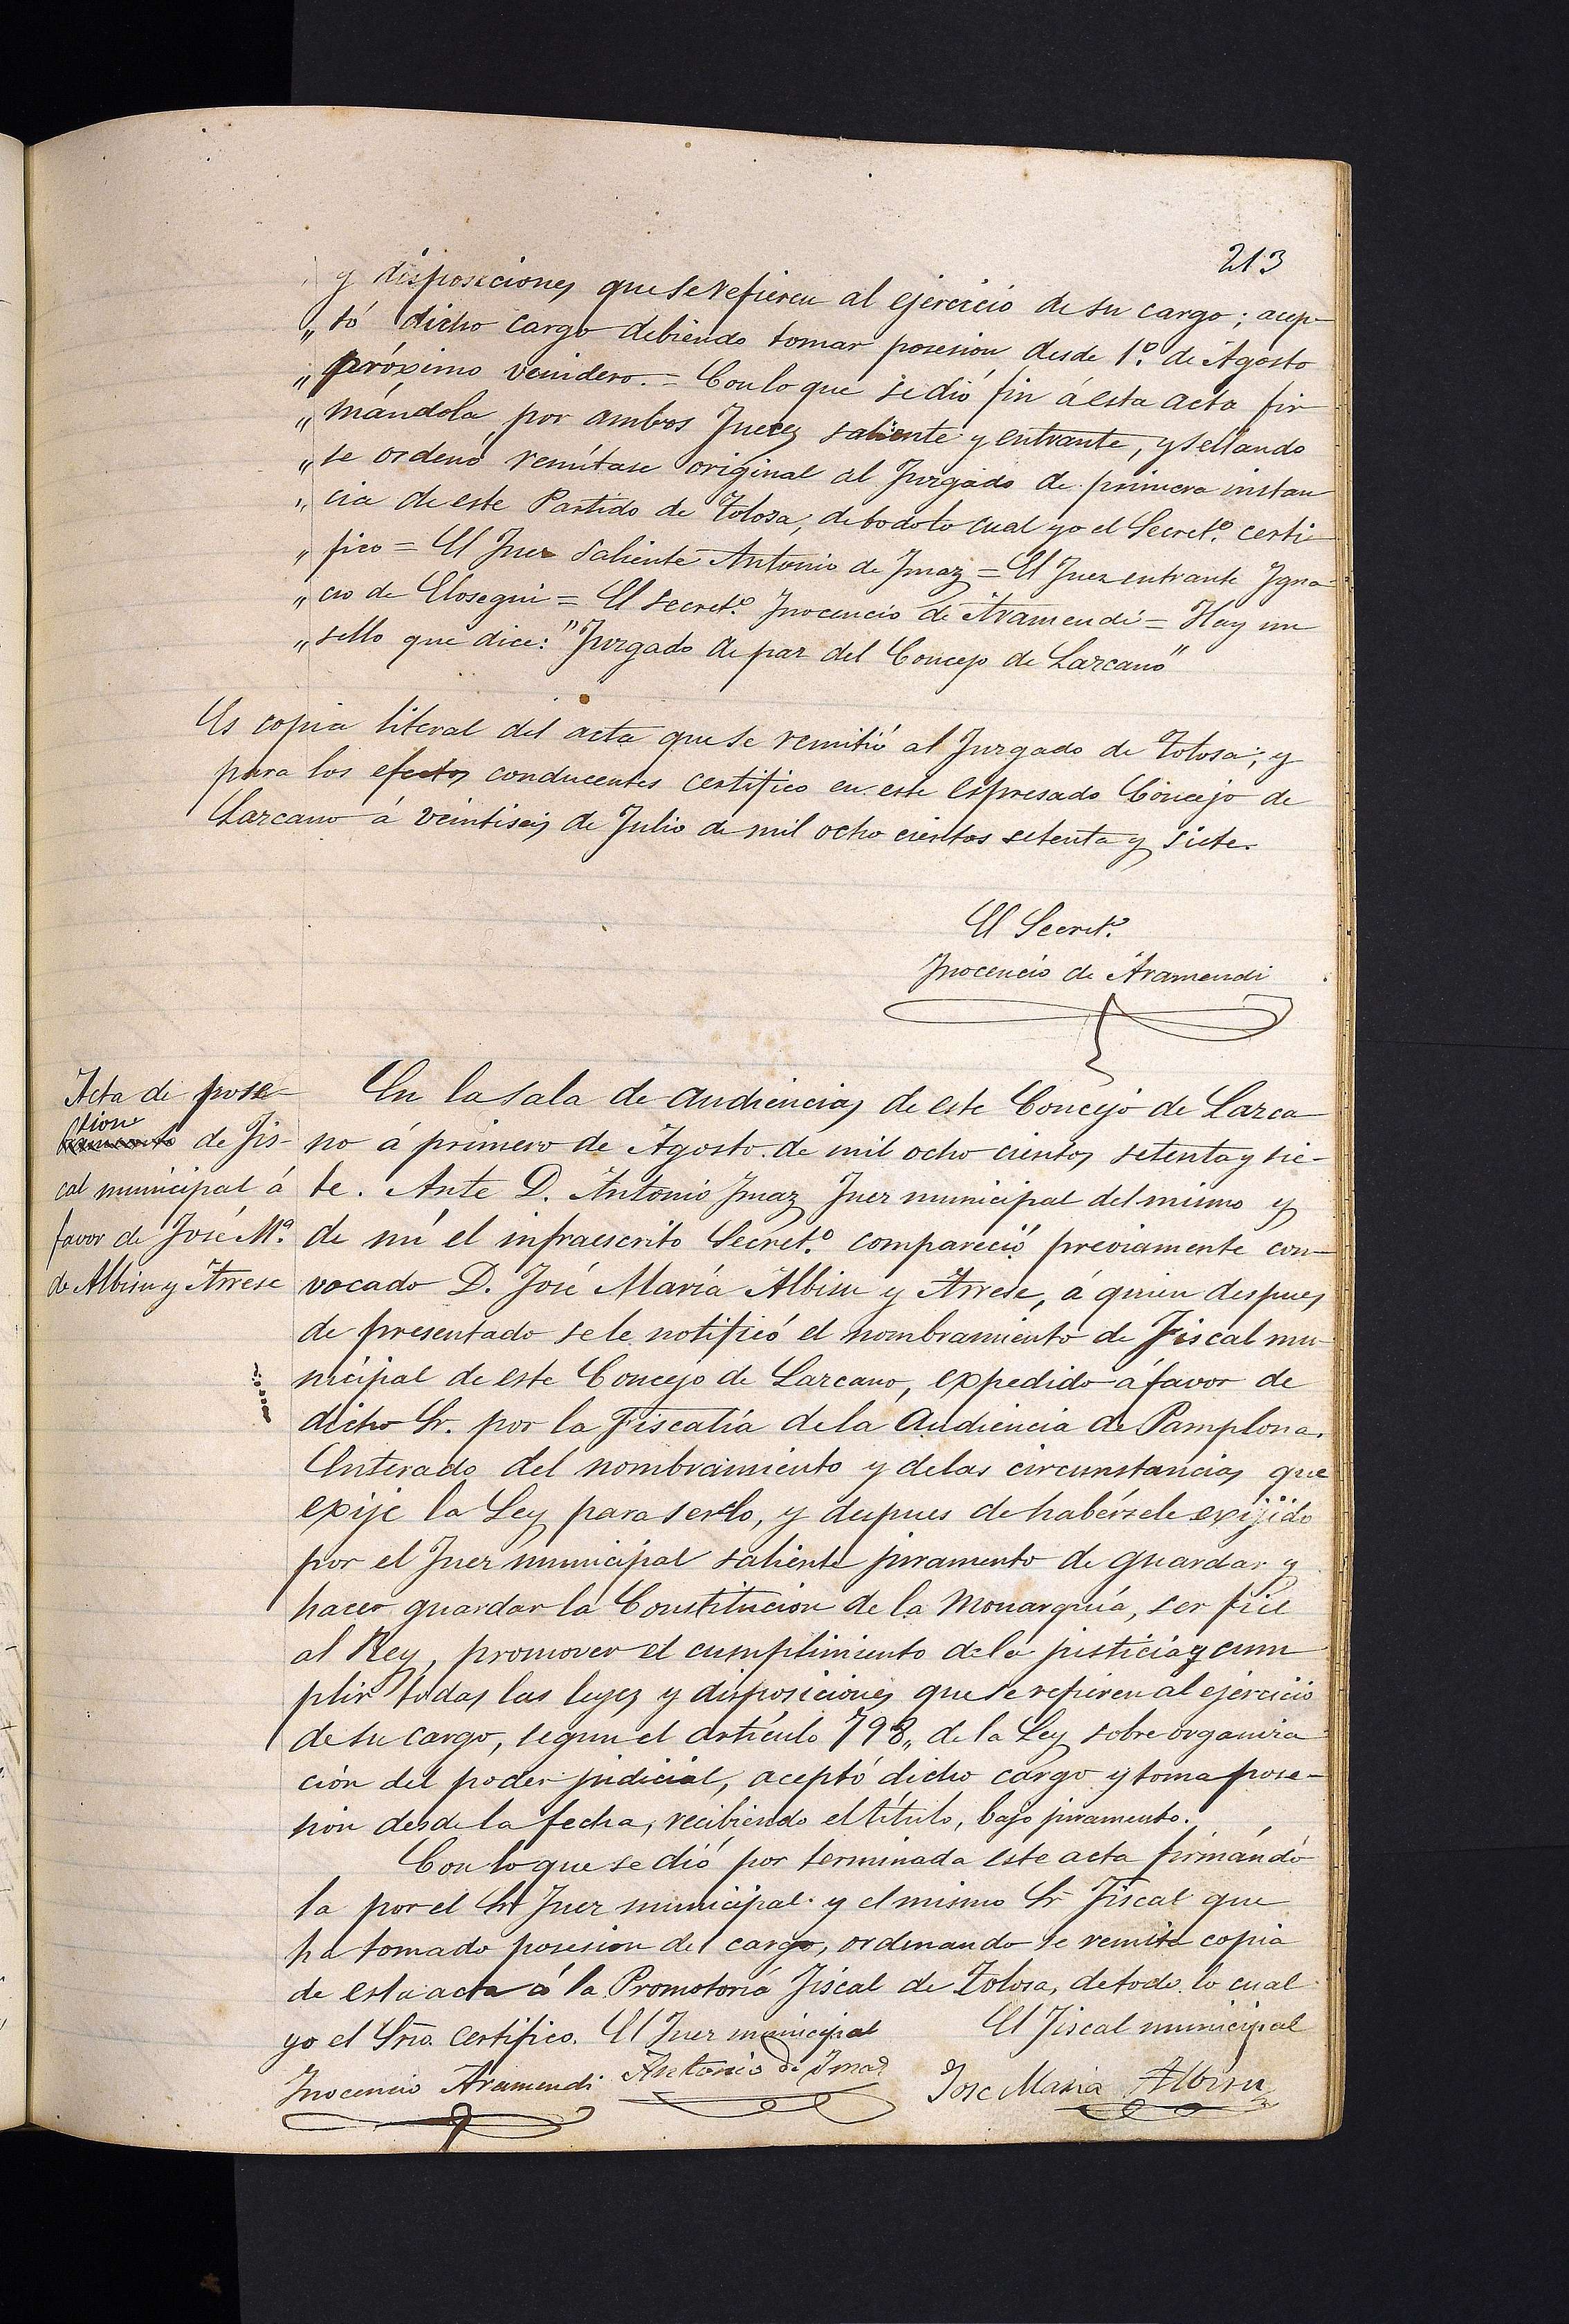 213
y disposiciones que se refieren al ejercicio de su cargo; acep-
„ tó dicho cargo debiendo tomar posesion desde 1º. de Agosto
„ próximo venidero. = Con lo que se dió fin á esta acta fir
„ mándola por ambos Jueces saliente y entrante, y sellando
„ se ordenó remítase original al Juzgado de primera instan
„ cia de este Partido de Tolosa, de todo lo cual yo el Secretº. certi-
„ fico = El Juez saliente Antonio de Imaz = El Juez entrante Igna-
„ cio de Elosegui = El Secretº. Inocencio de Aramendi = Hay un
„ sello que dice: "Juzgado de paz del Concejo de Lazcano"
Es copia literal del acta que se remitió al Juzgado de Tolosa; y
para los efectos conducentes certifico en este espresado Concejo de
Lazcano á veintiseis de Julio de mil ocho cientos setenta y siete.
El Secretº.
Inocencio de Aramendi
Acta de pose-
sion
de Fis-
cal municipal á
favor de José Mª.
de Albisu y Arrese
En la sala de audiencias de este Concejo de Lazca-
no á primero de Agosto de mil ocho cientos setenta y sie-
te. Ante D. Antonio Imaz Juez municipal del mismo y
de mí el infraescrito Secretº. compareció previamente con-
vocado D. José María Albisu y Arrese, á quien despues
de presentado se le notificó el nombramiento de Fiscal mu-
nicipal de este Concejo de Lazcano, expedido á favor de
dicho Sr. por la Fiscalía de la Audiencia de Pamplona.
Enterado del nombramiento y de las circunstancias que
exije la Ley para serlo, y despues de habérsele exijido
por el Juez municipal saliente juramento de guardar y
hacer guardar la Constitucion de la Monarquía, ser fiel
al Rey, promover el cumplimiento de la justicia y cum
plir todas las leyes y disposiciones que se refieren al ejercicio
de su cargo, segun el artículo 798„ de la Ley sobre organiza
ción del poder judicial, aceptó dicho cargo y toma pose-
sion desde la fecha, recibiendo el título, bajo juramento.
Con lo que se dió por terminada este acta firmándo
la por el Sr Juez municipal y el mismo Sr Fiscal que
ha tomado posesion del cargo, ordenando se remita copia
de esta acta á la Promotoría Fiscal de Tolosa, de todo lo cual
yo el Srio. certifico. El Juez municipal El Fiscal municipal
Inocencio Aramendi Antonio de Imaz Jose Maria Albisu